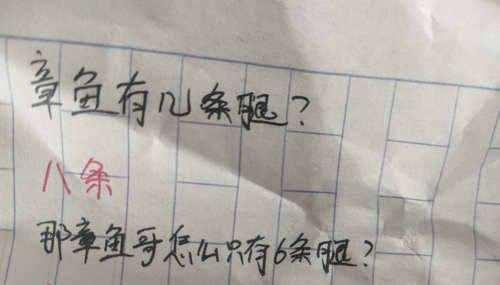 章鱼有几条腿?
八条
那章鱼哥怎么只有6条腿?